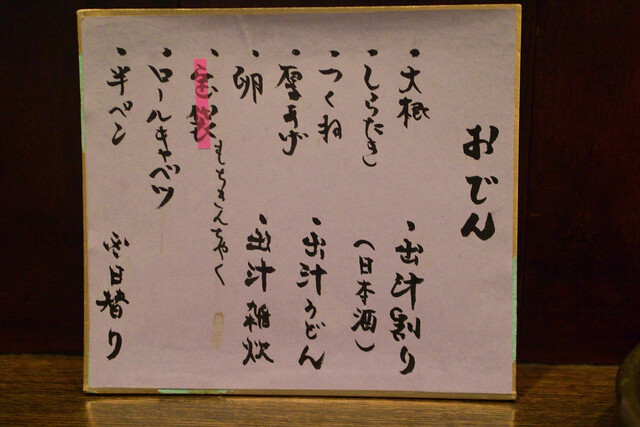 おでん
・大根
・しらたき
・つくね
・厚あげ
・卵
・宝袋 もちきんちゃく
・ロールキャベツ
・半ペン
・出汁割り
(日本酒)
・出汁うどん
・出汁雑炊
日替り